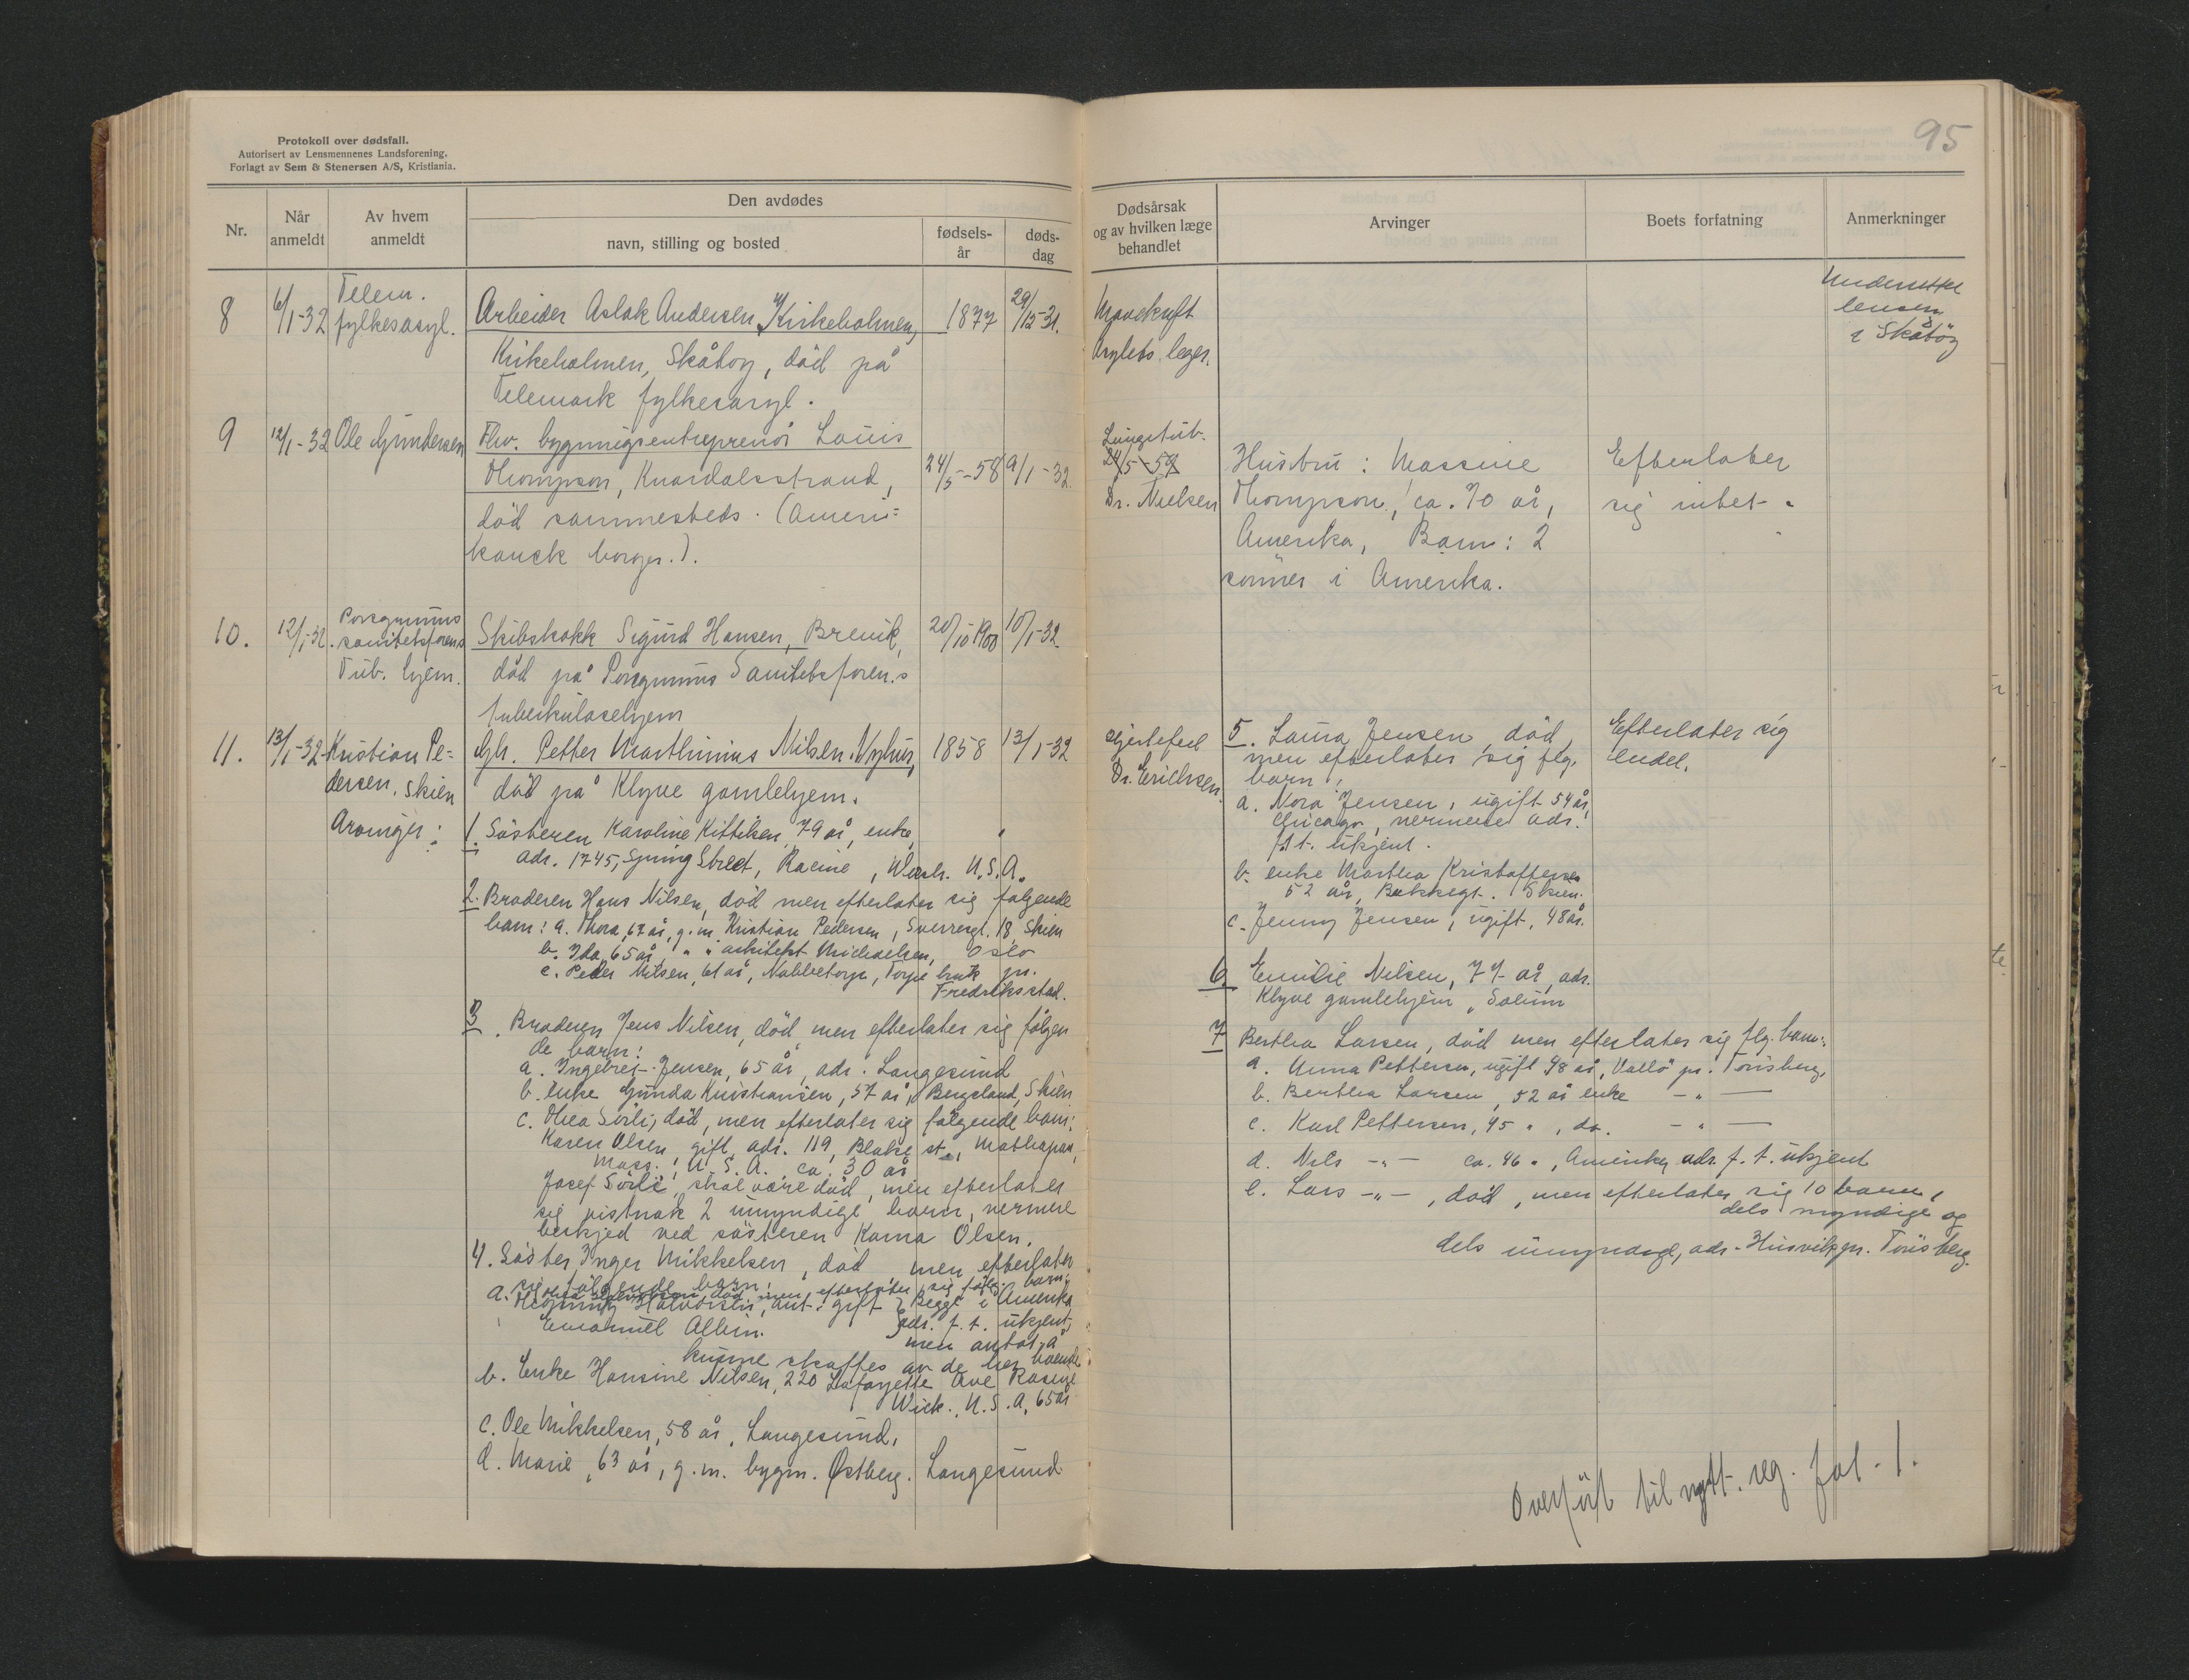 Protokoll over dødsfall.
Autorisert av Lensmennenes Landsforening.
Forlagt av Sem & Stenersen A/S, Kristiania.
95
Nr.
Når anmeldt
Av hvem anmeldt
Den avdødes
navn, stilling og bosted
fødsels-år
døds-dag
Dødsårsak og av hvilken læge behandlet
Arvinger
Boets forfatning
Anmerkninger
8
6/1-32
Telem.
fylkesasyl.
Arbeider Aslak Andersen Kirkeholmen,
1877
29/12-31.
Kirkeholmen, Skåtøy, död på
Telemark fylkesasyl.
Mavekreft
Asylets leger.
Underrettet
lensm.
i Skåtöy
9
12/1-32
Ole Gundersen
Fhv. bygningsentreprenör Louis
Thompson, Knardalsstrand,
död sammesteds. (Ameri=
kansk borger.).
24/5-58
9/1-32.
Lungetub.
24/5-59
Dr. Nielsen
Hustru: Massine
Thompson, ca. 70 år,
Amerika, Barn: 2
sönner i Amerika.
Efterlater
sig intet.
10.
12/1-32.
Porsgrunns
sanitetsforens
Tub. hjem.
Skibskokk Sigurd Hansen, Brevik,
död på Porsgrunns Sanitetsforen.s
tuberkulosehjem
20/10 1900
10/1-32.
11.
13/1-32
Kristian Pe=
dersen, Skien
Gh. Petter Marthinius Nilsen Nyhus,
död på Klyve gamlehjem.
1858
13/1-32
Hjertefeil
Dr. Erichsen.
Efterlater sig
endel.
Arvinger:
1. Sösteren Karoline Kittilsen, 79 år, enke,
adr. 1745, Spring Street, Racine, U.S.A.
2. Broderen Hans Nilsen, död men efterlater sig følgende
barn: a. Thora, 67 år, g.m. Kristian Pedersen, Sverresgt. 18 Skien
b. Ida, 65 år, " " arkitekt Michaelsen, Oslo
c. Peder Nilsen, 61 år, Nabbetorp, Torp bruk pr.
Fredriksstad.
3. Broderen Jens Nilsen, död, men efterlater sig fölgen
de barn:
a. Ingebret Jensen, 65 år, adr. Langesund
b. enke Gunda Kristiansen, 57 år, Bergsland, Skien
c. Thea Sörli, död, men efterlater sig fölgende barn:
Karen Olsen, gift, adr. 119, Blake st., Mattapan,
Mass., U.S.A., ca. 30 år
Josef Sörlie, skal være död, men efterlater
sig vistnok 2 umyndige barn, nermere
beskjed ved sösteren Karna Olsen.
4. Söster Inger Mikkelsen, död men efterlater
sig følgende barn:
a. Halvorsen, ant. gift } Begge i Amerika
Emanuel Albin. adr. f.t. ukjent,
men antas å
kunne skaffes av de her boende
b. Enke Hansine Nilsen, 220 Lafayette Ave Racine
Wisk., U.S.A, 65 år
c. Ole Mikkelsen, 58 år, Langesund,
d. Marie, 63 år, g.m. bygm. Østberg. Langesund
5. Laura Jensen, död,
men efterlater sig flg.
barn:
a. Nora Jensen, ugift 54 år,
Chicago, nermere adr.
f.t. ukjent.
b. enke Martha Kristoffersen
52 år, Bakkegt. Skien.
c. Jenny Jensen, ugift, 48 år.
6 Emilie Nilsen, 77 år, adr.
Klyve gamlehjem, Solum
7 Bertha Larsen, död men efterlater sig flg. barn:
a. Anna Pettersen, ugift 48 år, Vallö pr. Tönsberg,
b. Bertha Larsen, 52 år enke - " -
c. Karl Pettersen, 45 ", do. - " -
d. Nils - " - ca. 46 ", Amerika, adr. f.t. ukjent
e. Lars - " -, död, men efterlater sig 10 barn,
dels myndige og
dels umyndige, adr. Husvik pr. Tönsberg.
Overfört til nytt. reg. fol. 1.